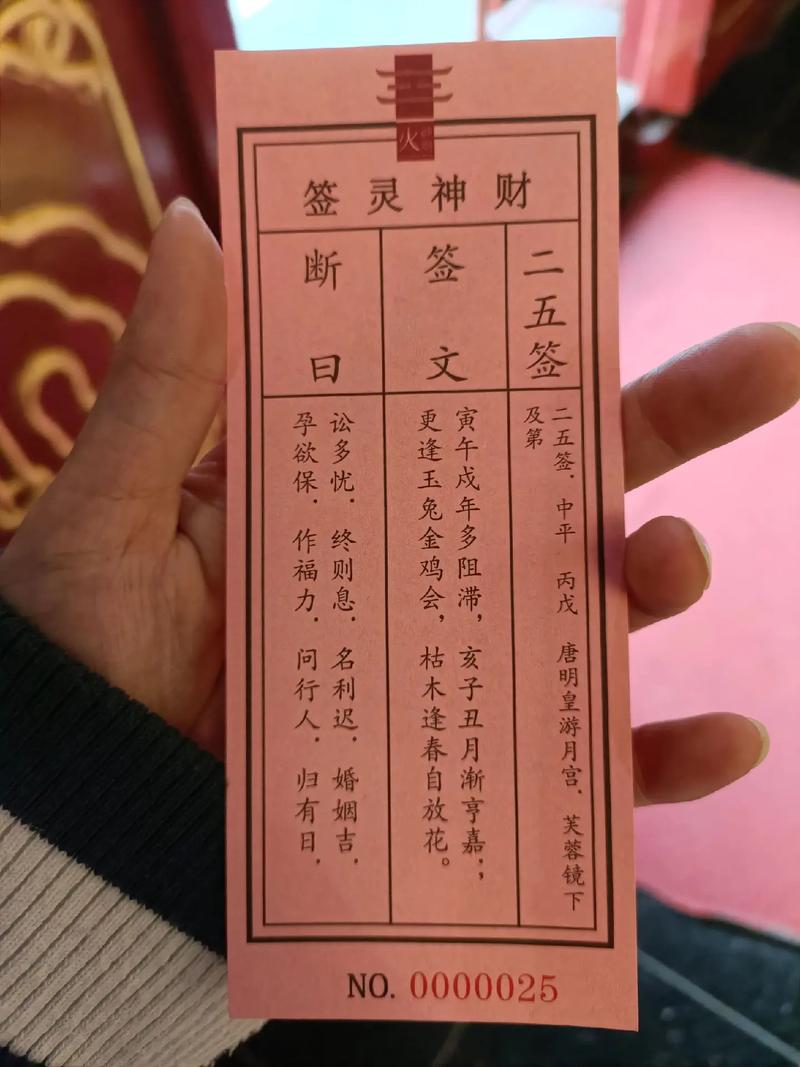 火
财神灵签
二五签
二五签. 中平 丙戊 唐明皇游月宫. 芙蓉镜下
及第
签文
寅午戍年多阻滞, 亥子丑月渐亨嘉.;
更逢玉兔金鸡会, 枯木逢春自放花。
断曰
讼多忧. 终则息. 名利迟. 婚姻吉.
孕欲保. 作福力. 问行人. 归有日.
NO. 0000025